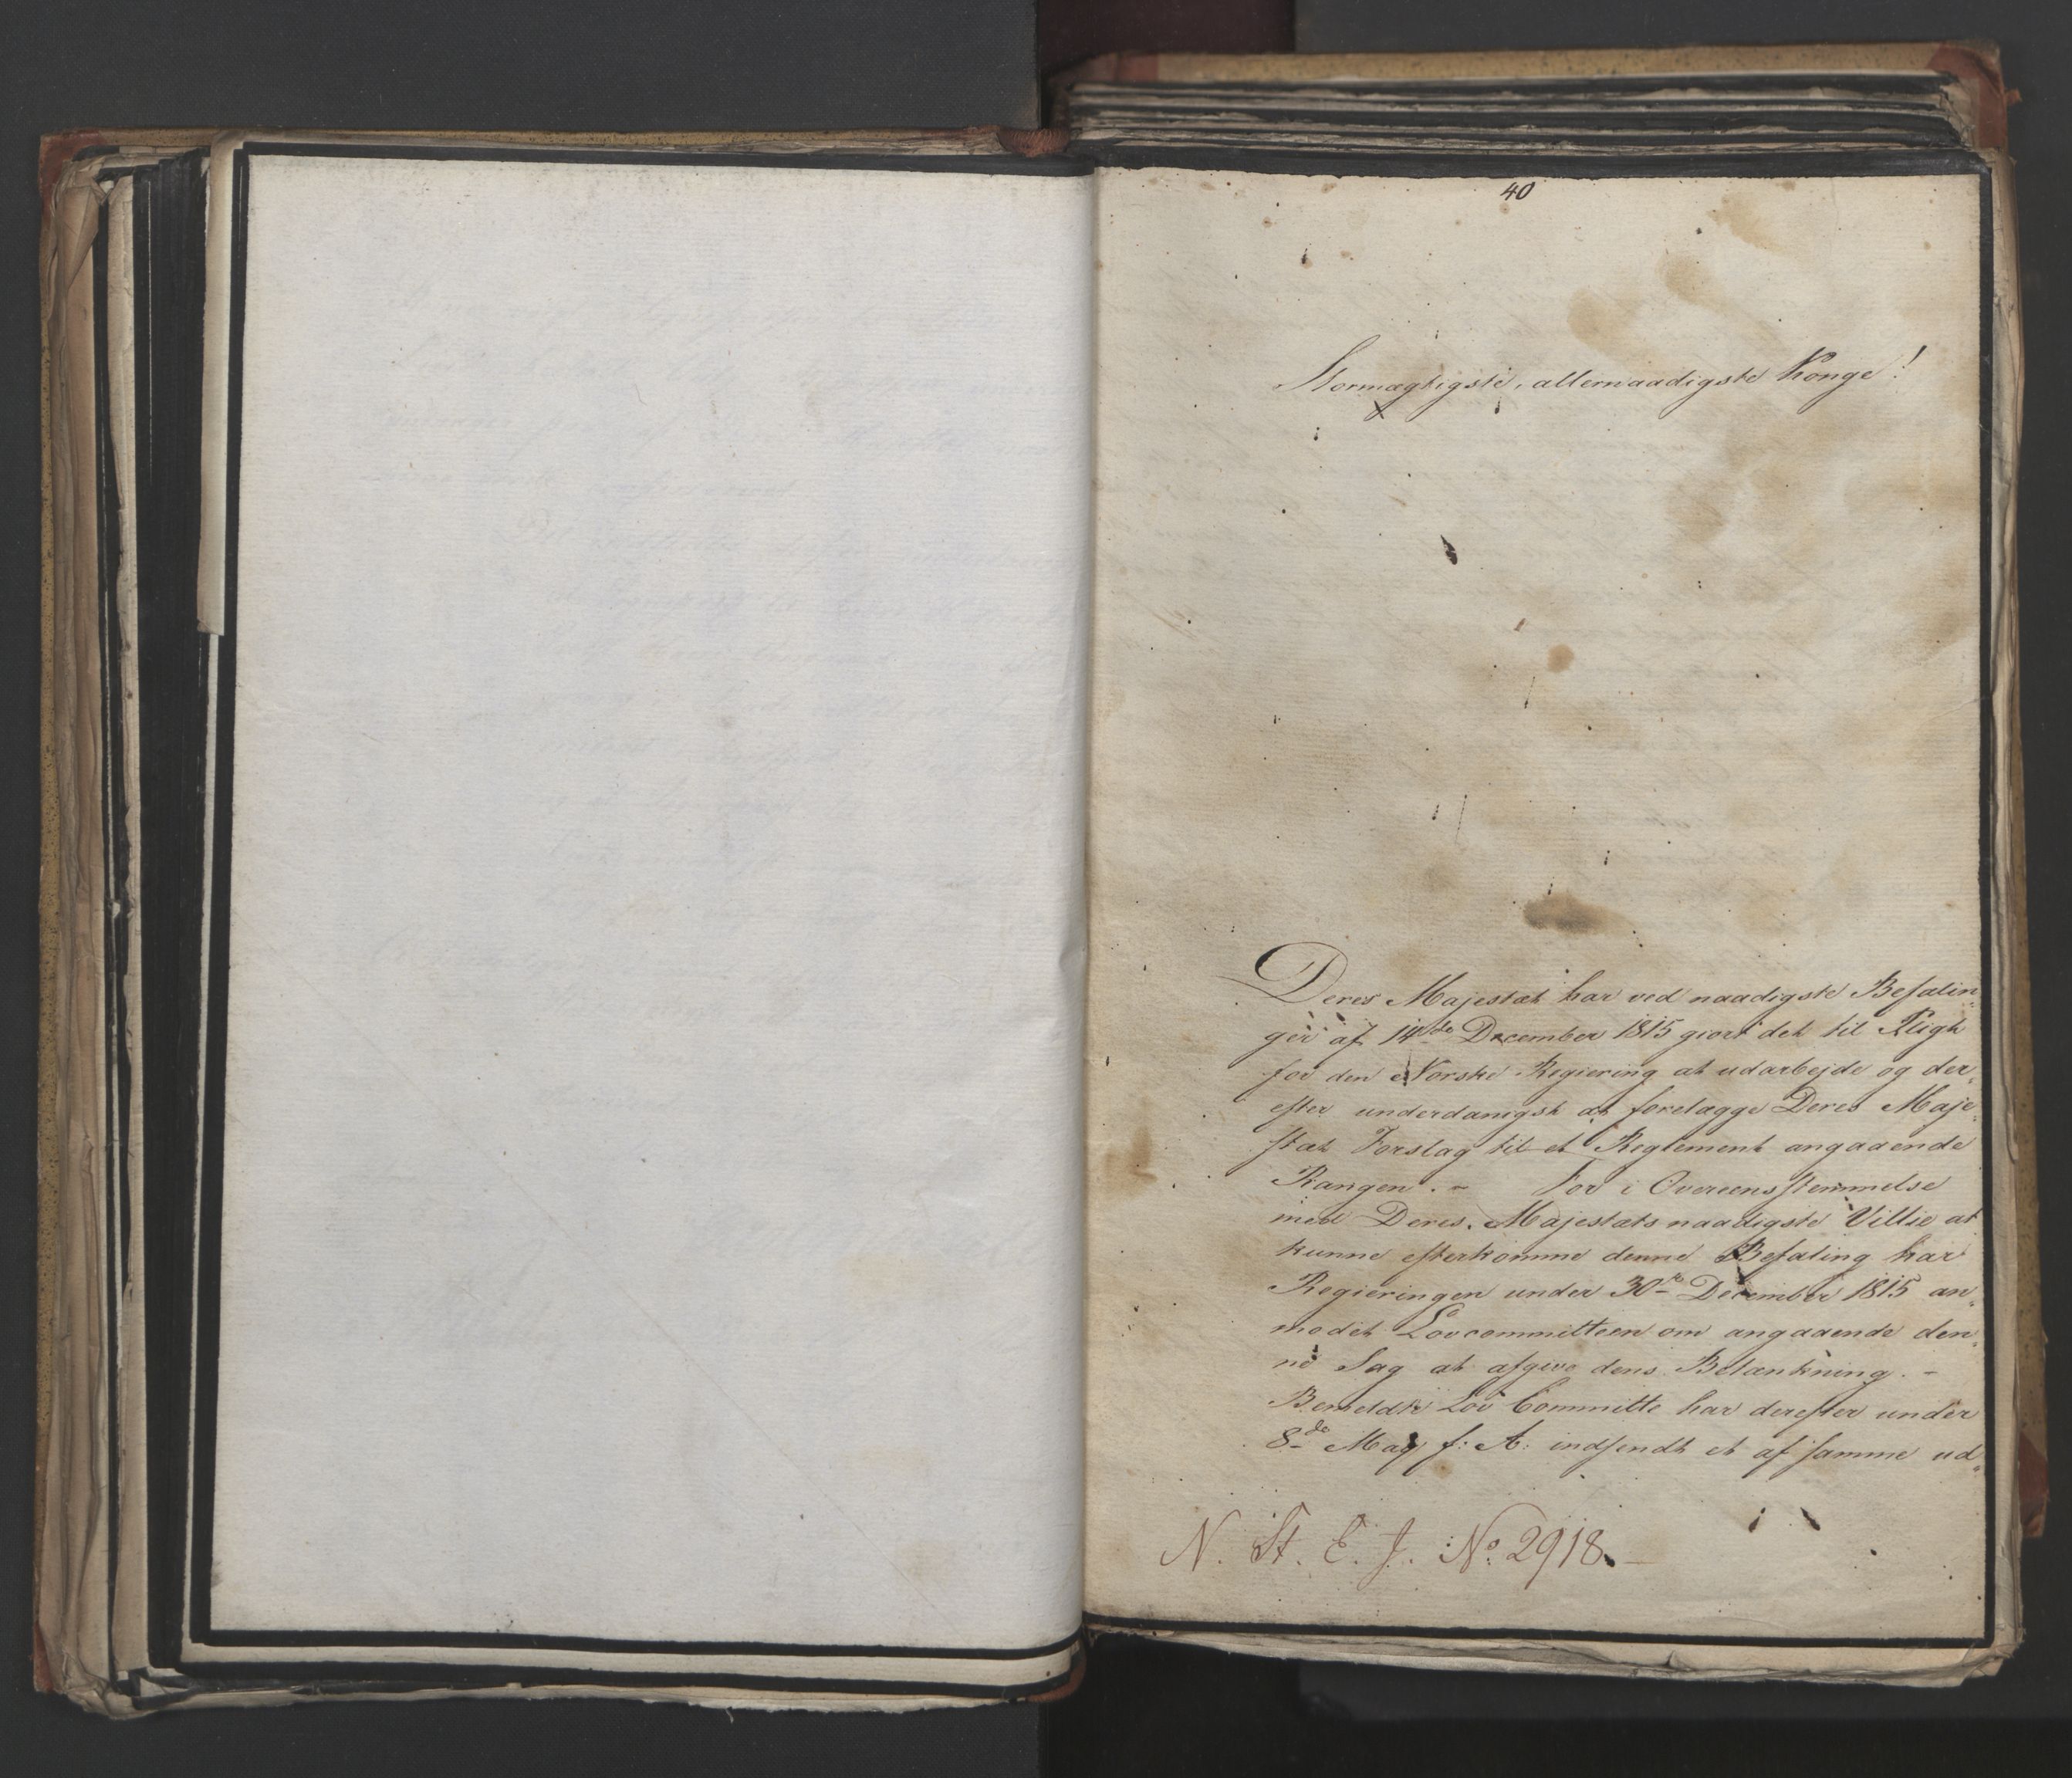 40
Stormægtigste, allernaadigste Konge!
Deres Majestæt har ved naadigste Befalin„
ger af 14de December 1815 giort det til Pligt
for den Norske Regiering at udarbejde og der„
efter underdanigst at forelægge Deres Maje„
stæt Forslag til et Reglement angaaende
Rangen. – For i Overeensstemmelse
med Deres Majestæts naadigste Villie at
kunne efterkomme denne Befaling har
Regieringen under 30te December 1815 an„
modet Lovcommitteen om angaaende den„
ne Sag at afgive dens Betænkning. –
Bemeldte Lov Committe har derefter under
8de May f: A: indsendt et af samme ud„
N. St. E. J. No. 2918. –